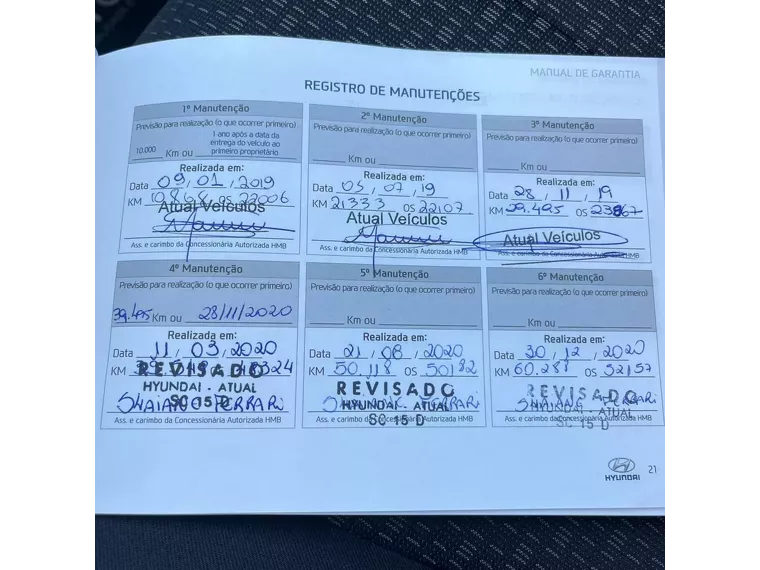 MANUAL DE GARANTIA
REGISTRO DE MANUTENÇÕES
1ª Manutenção
Previsão para realização (o que ocorrer primeiro)
10.000 Km ou 1 ano após a data da
entrega do veículo ao
primeiro proprietário.
Realizada em:
Data 09, 01, 2019
KM 10.868 OS 22006
Atual Veículos
Ass. e carimbo da Concessionária Autorizada HMB
2ª Manutenção
Previsão para realização (o que ocorrer primeiro)
Km ou
Realizada em:
Data 05, 07, 19
KM 21333 OS 22107
Atual Veículos
Ass. e carimbo da Concessionária Autorizada HMB
3ª Manutenção
Previsão para realização (o que ocorrer primeiro)
Km ou
Realizada em:
Data 28, 11, 19
KM OS
Atual Veículos
Ass. e carimbo da Concessionária Autorizada HMB
4ª Manutenção
Previsão para realização (o que ocorrer primeiro)
39.495 Km ou 28/11/2020
Realizada em:
Data 11, 03, 2020
KM
REVISADO
HYUNDAI - ATUAL
SC 15 D
Ass. e carimbo da Concessionária Autorizada HMB
5ª Manutenção
Previsão para realização (o que ocorrer primeiro)
Km ou
Realizada em:
Data 21, 08, 2020
KM 50.118 OS 50182
REVISADO
HYUNDAI - ATUAL
SC 15 D
Ass. e carimbo da Concessionária Autorizada HMB
6ª Manutenção
Previsão para realização (o que ocorrer primeiro)
Km ou
Realizada em:
Data 30, 12, 2020
KM 60.288 OS 52157
REVISADO
HYUNDAI - ATUAL
SC 15 D
Ass. e carimbo da Concessionária Autorizada HMB
HYUNDAI
21